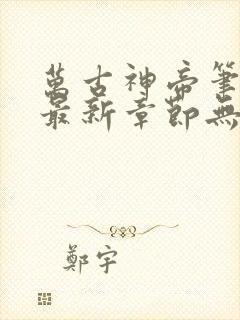 萬古神帝筆
最新章節無
鄭宇